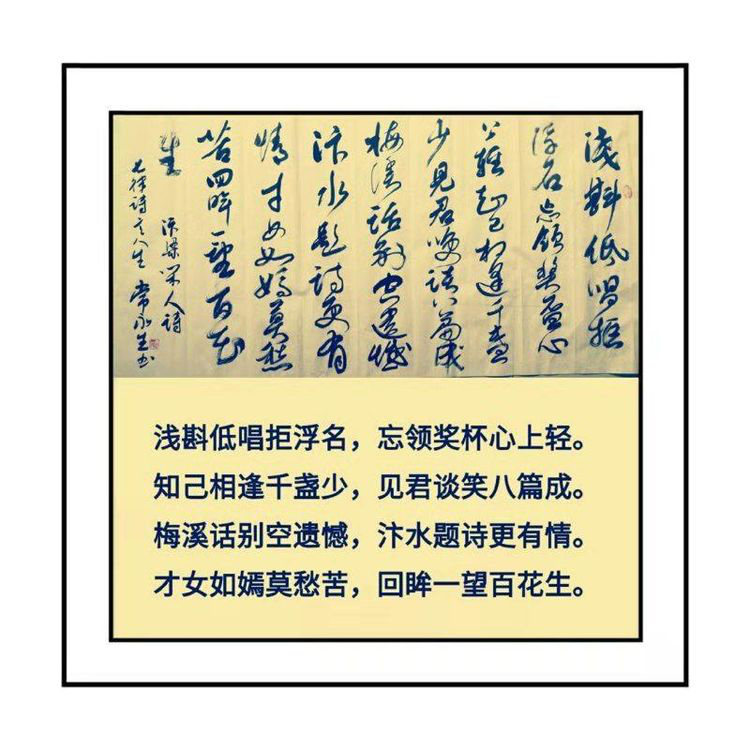 淺斟低唱拒
浮名忘领奖盃心
上轻知己相逢千盏
少见君谈八篇成
梅溪话别空遗憾
汴水题诗更有
情才女如嫣莫愁
苦回眸一望百花
生
汴梁闲人诗
七律诗人生 常永生书
浅斟低唱拒浮名，忘领奖杯心上轻。
知己相逢千盏少，见君谈笑八篇成。
梅溪话别空遗憾，汴水题诗更有情。
才女如嫣莫愁苦，回眸一望百花生。